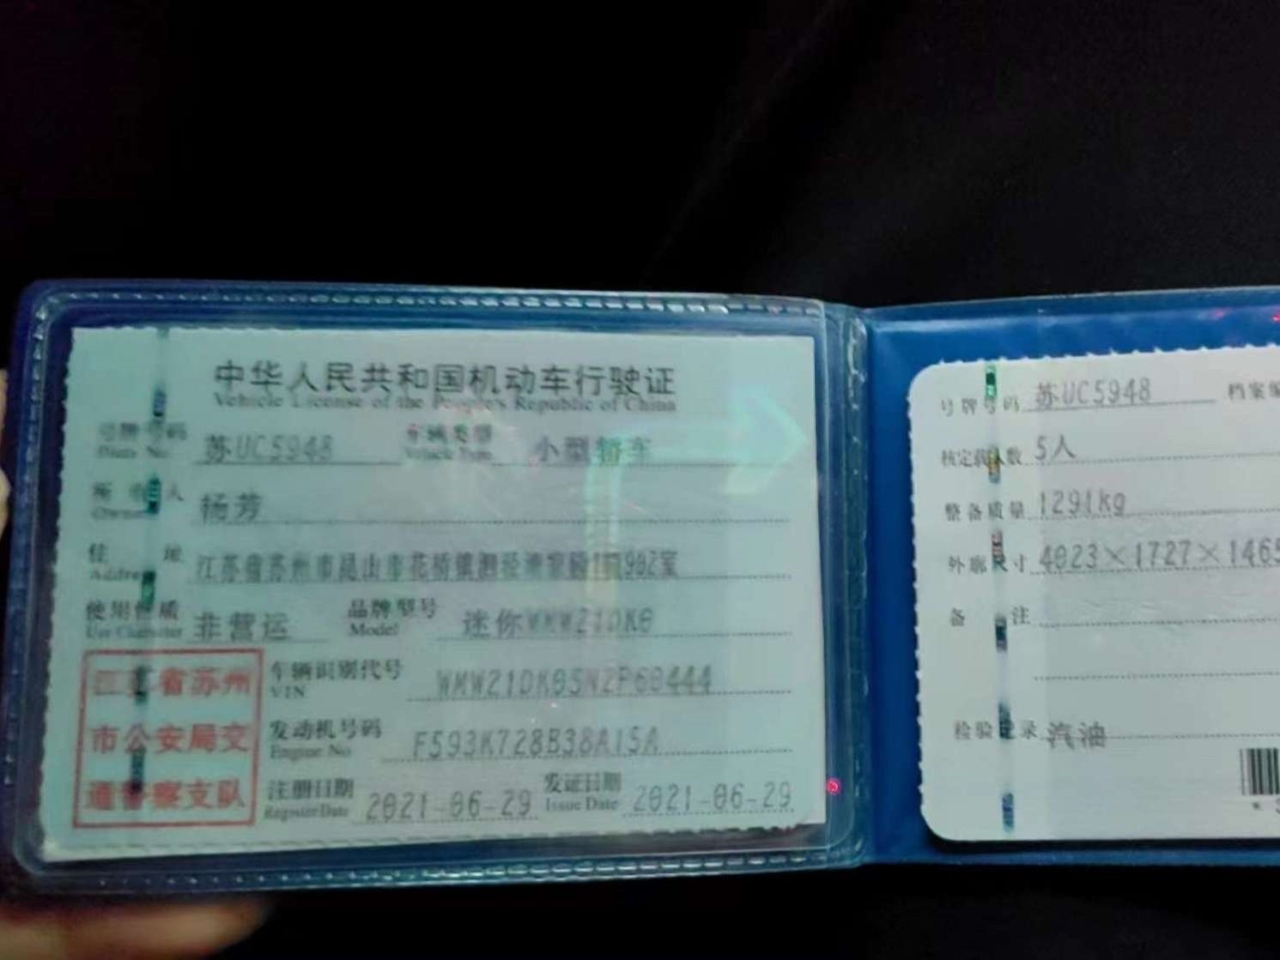 中华人民共和国机动车行驶证
Vehicle License of the People's Republic of China
号牌号码 苏UC5948 车辆类型 小型轿车
Plate No. Vehicle Type
所有人 杨芳
Owner
住址 江苏省苏州市昆山市花桥镇 902室
Address
使用性质 非营运 品牌型号 迷你WMWZ1DK0
Use Character Model
江苏省苏州
市公安局交
通警察支队
车辆识别代号
VIN
发动机号码 F593K728B38A15A
Engine No.
注册日期 2021-06-29 发证日期 2021-06-29
Register Date Issue Date
号牌号码 苏UC5948 档案编
核定载人数 5人
整备质量 1291kg
外廓尺寸 4023×1727×146
备注
检验记录 汽油